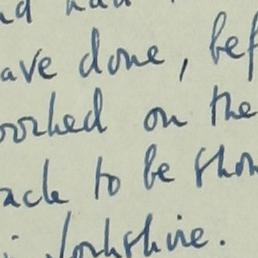 nd had
ave done, bef
orked on the
ack to be shon
in Yorkshire.